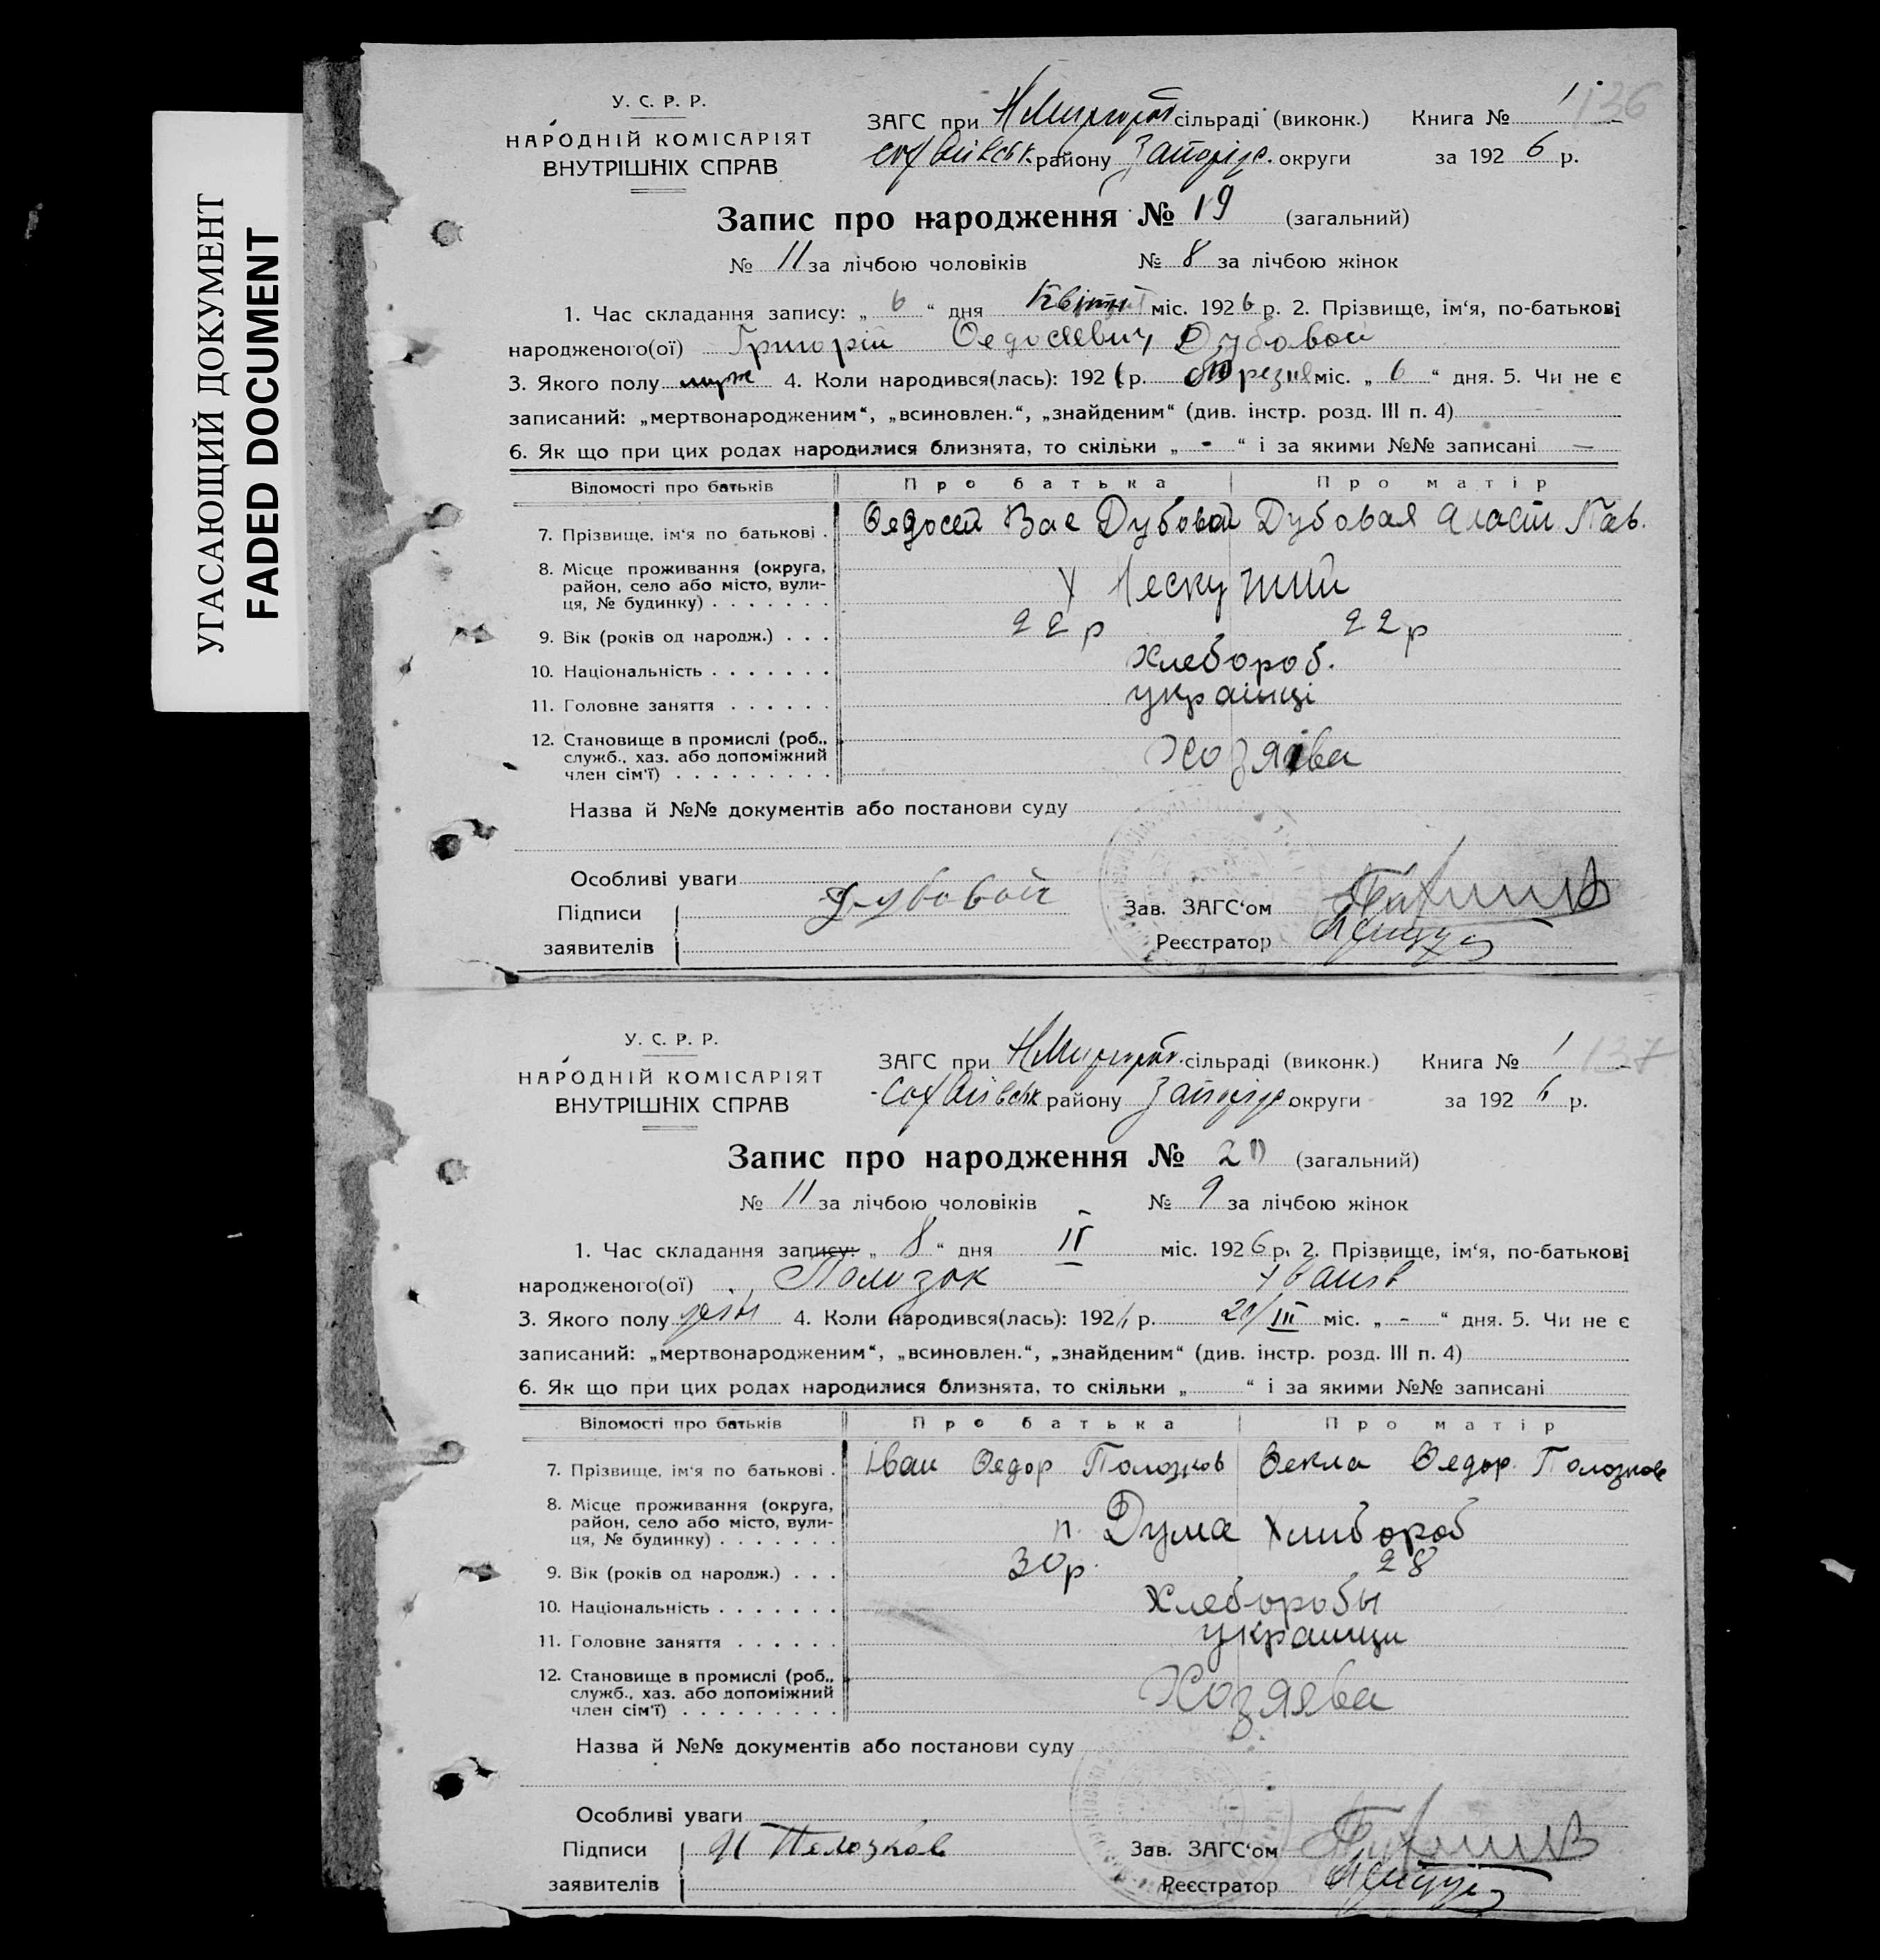 УГАСАЮЩИЙ ДОКУМЕНТ
FADED DOCUMENT
136
У. С. Р. Р.
НАРОДНІЙ КОМІСАРІЯТ
ВНУТРІШНІХ СПРАВ
ЗАГС при Н Миргород сільраді (виконк.) Книга № 1
Софіївськ. району Запоріж. округи за 1926 р.
Запис про народження № 19 (загальний)
№ 11 за лічбою чоловіків № 8 за лічбою жінок
1. Час складання запису: „ 6 “ дня Квітня міс. 1926 р. 2. Прізвище, ім‘я, по-батькові
народженого(ої) Григорій Федосієвич Дубовой
3. Якого полу муж 4. Коли народився(лась): 192 р. березня міс. „ 6 “ дня. 5. Чи не є
записаний: „мертвонародженим“, „всиновлен.“, „знайденим“ (див. інстр. розд. III п. 4)
6. Як що при цих родах народилися близнята, то скільки „ - “ і за якими №№ записані —
Відомості про батьків Про батька Про матір
7. Прізвище, ім‘я по батькові . Ѳедосей Вас Дубовой Дубовая Наст. Пав.
8. Місце проживання (округа,
район, село або місто, вули-
ця, № будинку) . . . . . . . х Нескучний
9. Вік (років од народж.) . . . 22 р 22 р
10. Національність . . . . . . . Хлебороб.
11. Головне заняття . . . . . . українці
12. Становище в промислі (роб.,
служб., хаз. або допоміжний
член сім‘ї) . . . . . . . . . Хозяїва
Назва й №№ документів або постанови суду
Особливі уваги
Підписи Дубовой Зав. ЗАГС‘ом
заявителів Реєстратор
137
У. С. Р. Р.
НАРОДНІЙ КОМІСАРІЯТ
ВНУТРІШНІХ СПРАВ
ЗАГС при Н Миргород. сільраді (виконк.) Книга № 1
Софіївськ району Запоріж. округи за 1926 р.
Запис про народження № 20 (загальний)
№ 11 за лічбою чоловіків № 9 за лічбою жінок
1. Час складання запису: „ 8 “ дня міс. 1926 р. 2. Прізвище, ім‘я, по-батькові
народженого(ої)
3. Якого полу жін 4. Коли народився(лась): 192 р. III міс. „ - “ дня. 5. Чи не є
записаний: „мертвонародженим“, „всиновлен.“, „знайденим“ (див. інстр. розд. III п. 4)
6. Як що при цих родах народилися близнята, то скільки „ “ і за якими №№ записані
Відомості про батьків Про батька Про матір
7. Прізвище, ім‘я по батькові . Іван Ѳедор Полозков Ѳекла Ѳедор. Полозкова
8. Місце проживання (округа,
район, село або місто, вули-
ця, № будинку) . . . . . . . п. Дума Хлибороб
9. Вік (років од народж.) . . . 30 р. 28
10. Національність . . . . . . . Хлеборобы
11. Головне заняття . . . . . . украинци
12. Становище в промислі (роб.,
служб., хаз. або допоміжний
член сім‘ї) . . . . . . . . . Хозяева
Назва й №№ документів або постанови суду
Особливі уваги
Підписи И Полозков Зав. ЗАГС‘ом
заявителів Реєстратор